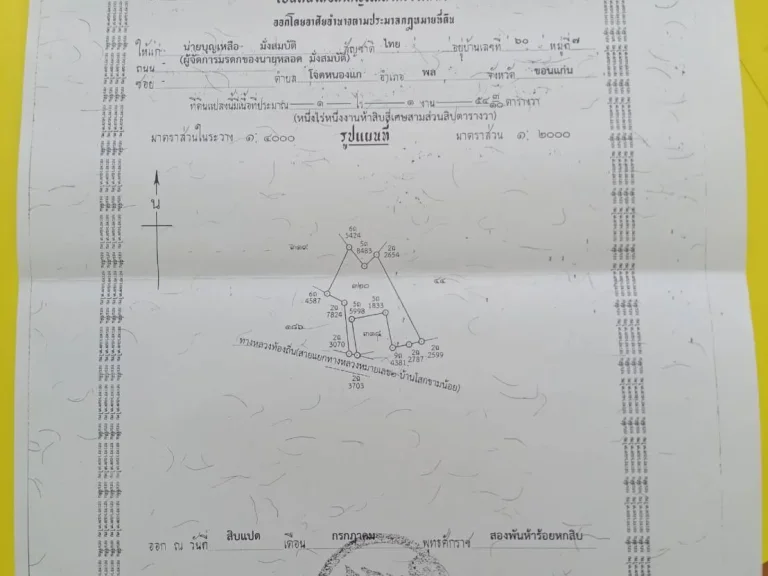 ออกโดยอาศัยอำนาจตามประมวลกฎหมายที่ดิน
ให้แก่ นายบุญเหลือ มั่งสมบัติ สัญชาติ ไทย อยู่บ้านเลขที่ ๖๐ หมู่ที่ ๗
(ผู้จัดการมรดกของนายหลอด มั่งสมบัติ)
ถนน
ซอย ตำบล โจดหนองแก อำเภอ พล จังหวัด ขอนแก่น
ที่ดินแปลงนี้มีเนื้อที่ประมาณ ๑ ไร่ ๑ งาน ๕๔ ๓/๑๐ ตารางวา
(หนึ่งไร่หนึ่งงานห้าสิบสี่เศษสามส่วนสิบตารางวา)
มาตราส่วนในระวาง ๑:๔๐๐๐ รูปแผนที่ มาตราส่วน ๑:๒๐๐๐
น
6ถ
5424
5ถ
8483
2ฉ
2654
๖๑๙
6ถ
4587
๓๒๐
๔๔
2ฉ
7824
5ถ
5998
5ถ
1833
๑๔๖
๓๑๘
2ฉ
3070
9ถ
4381
2ฉ
2787
2ฉ
2599
ทางหลวงท้องถิ่น(สายแยกทางหลวงหมายเลข๒-บ้านโสกขามน้อย)
2ฉ
3703
ออก ณ วันที่ สิบแปด เดือน กรกฎาคม พุทธศักราช สองพันห้าร้อยหกสิบ